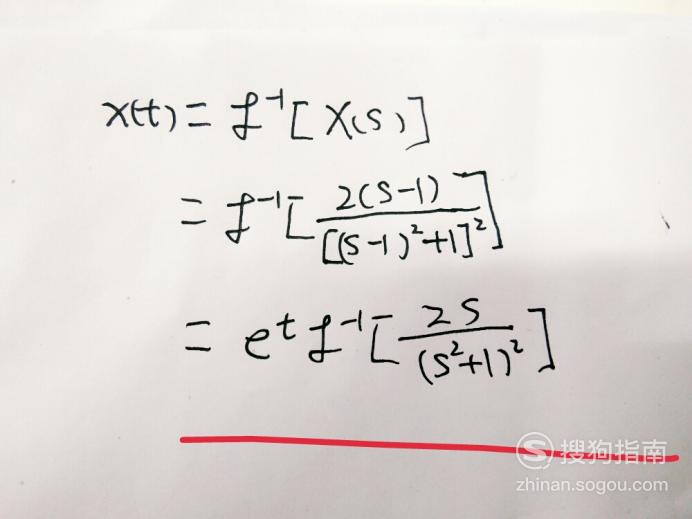 x(t) = ℒ⁻¹[X(s)]
= ℒ⁻¹[2(s-1)/[(s-1)²+1]²]
= eᵗ ℒ⁻¹[2s/(s²+1)²]
S 搜狗指南
zhinan.sogou.com